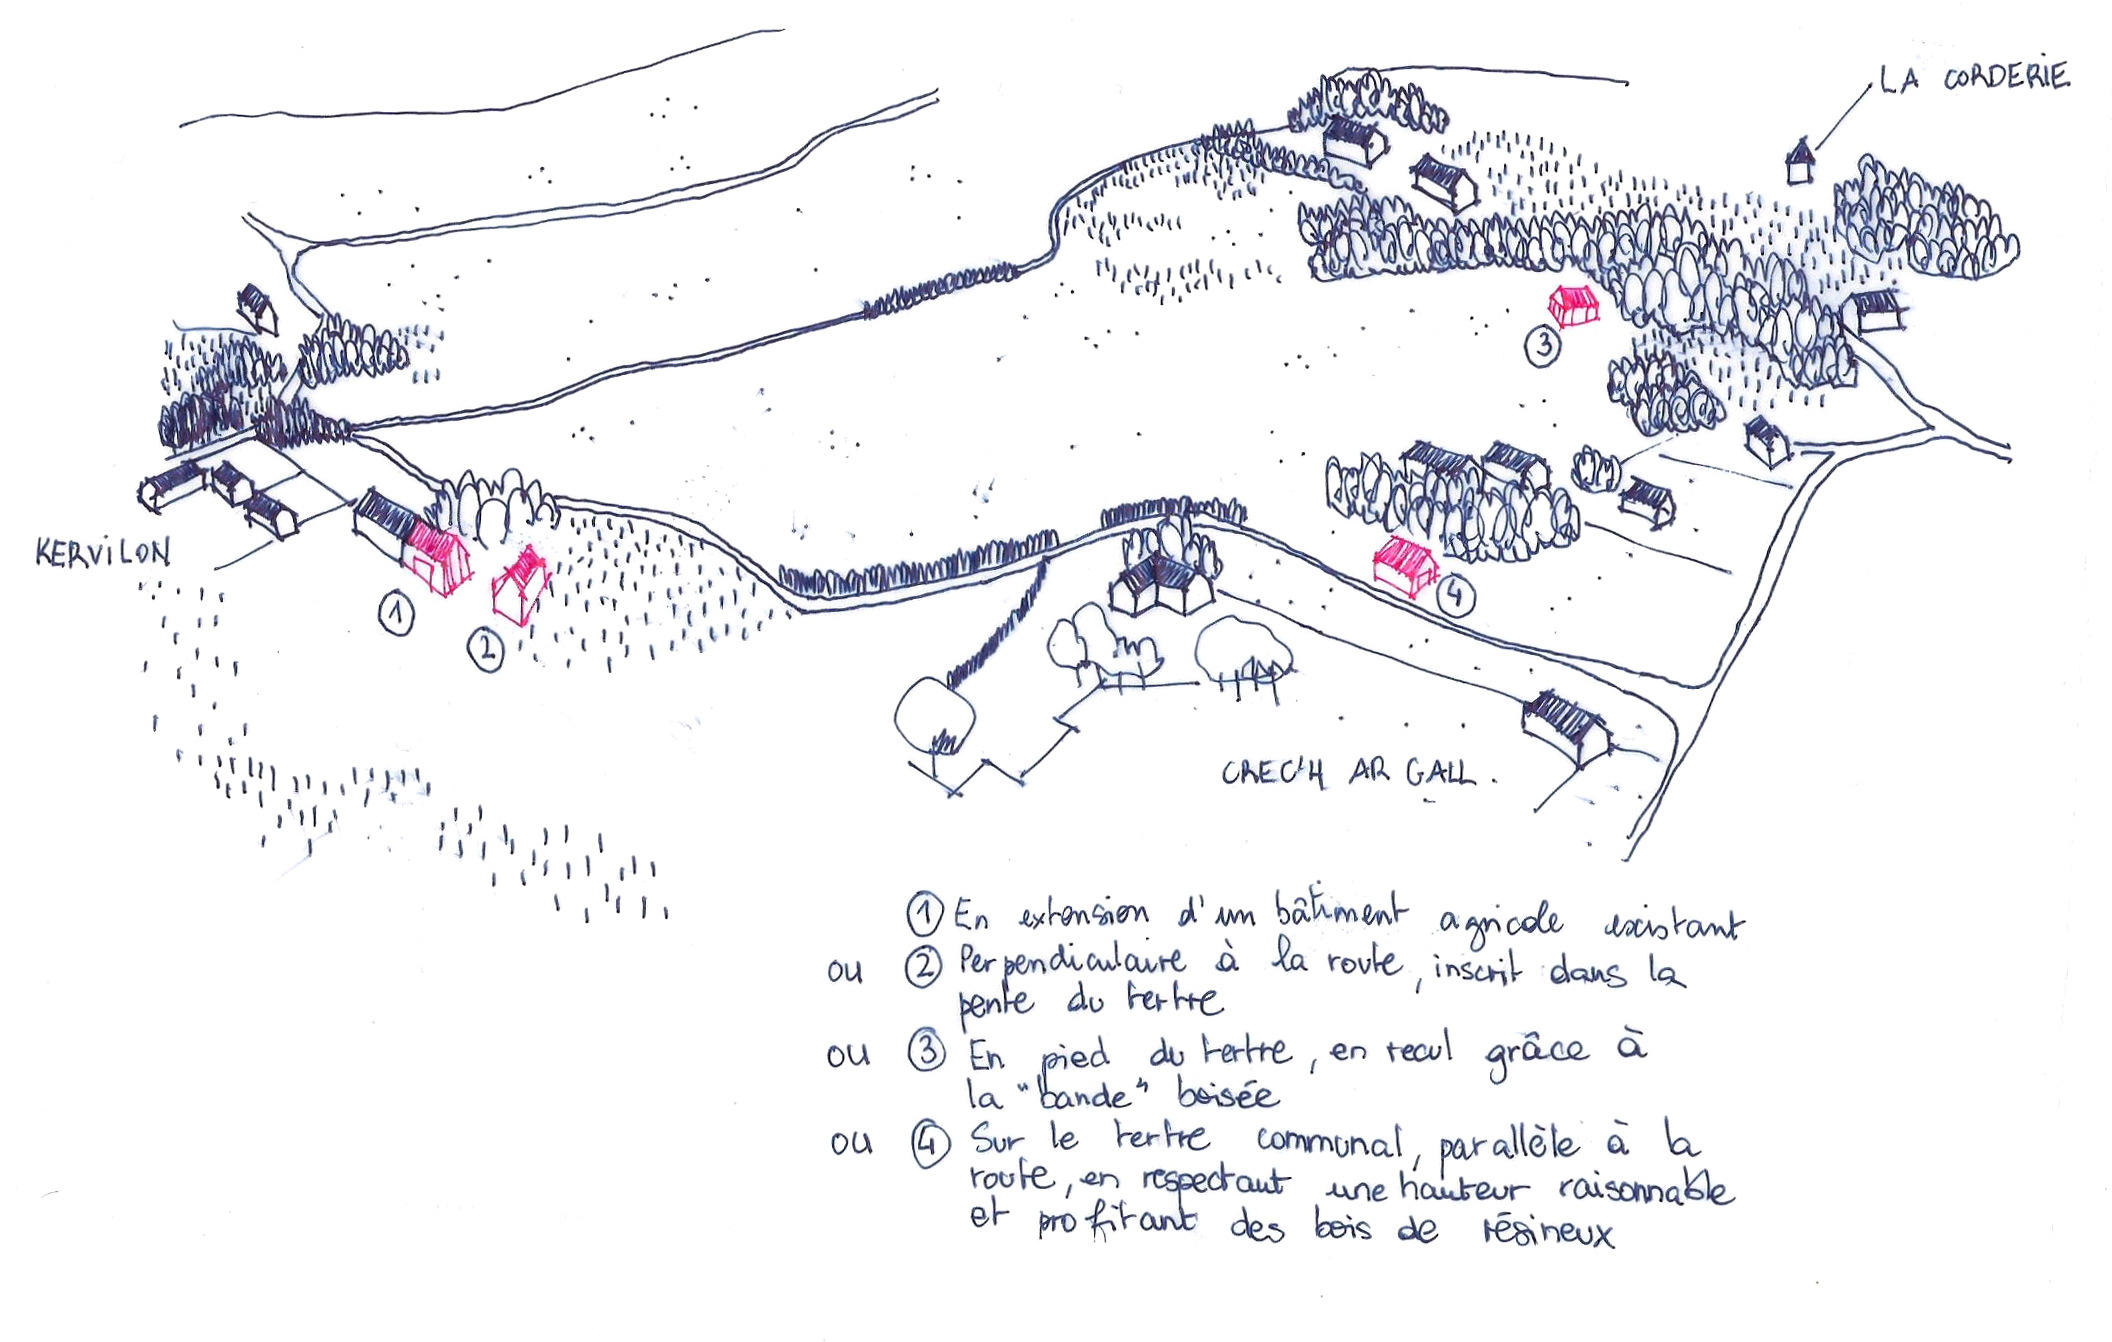 LA CORDERIE
3
KERVILON
1
2
4
CREC'H AR GALL.
1 En extension d'un bâtiment agricole existant
ou 2 Perpendiculaire à la route, inscrit dans la
pente du tertre
ou 3 En pied du tertre, en recul grâce à
la "bande" boisée
ou 4 Sur le tertre communal, parallèle à la
route, en respectant une hauteur raisonnable
et profitant des bois de résineux